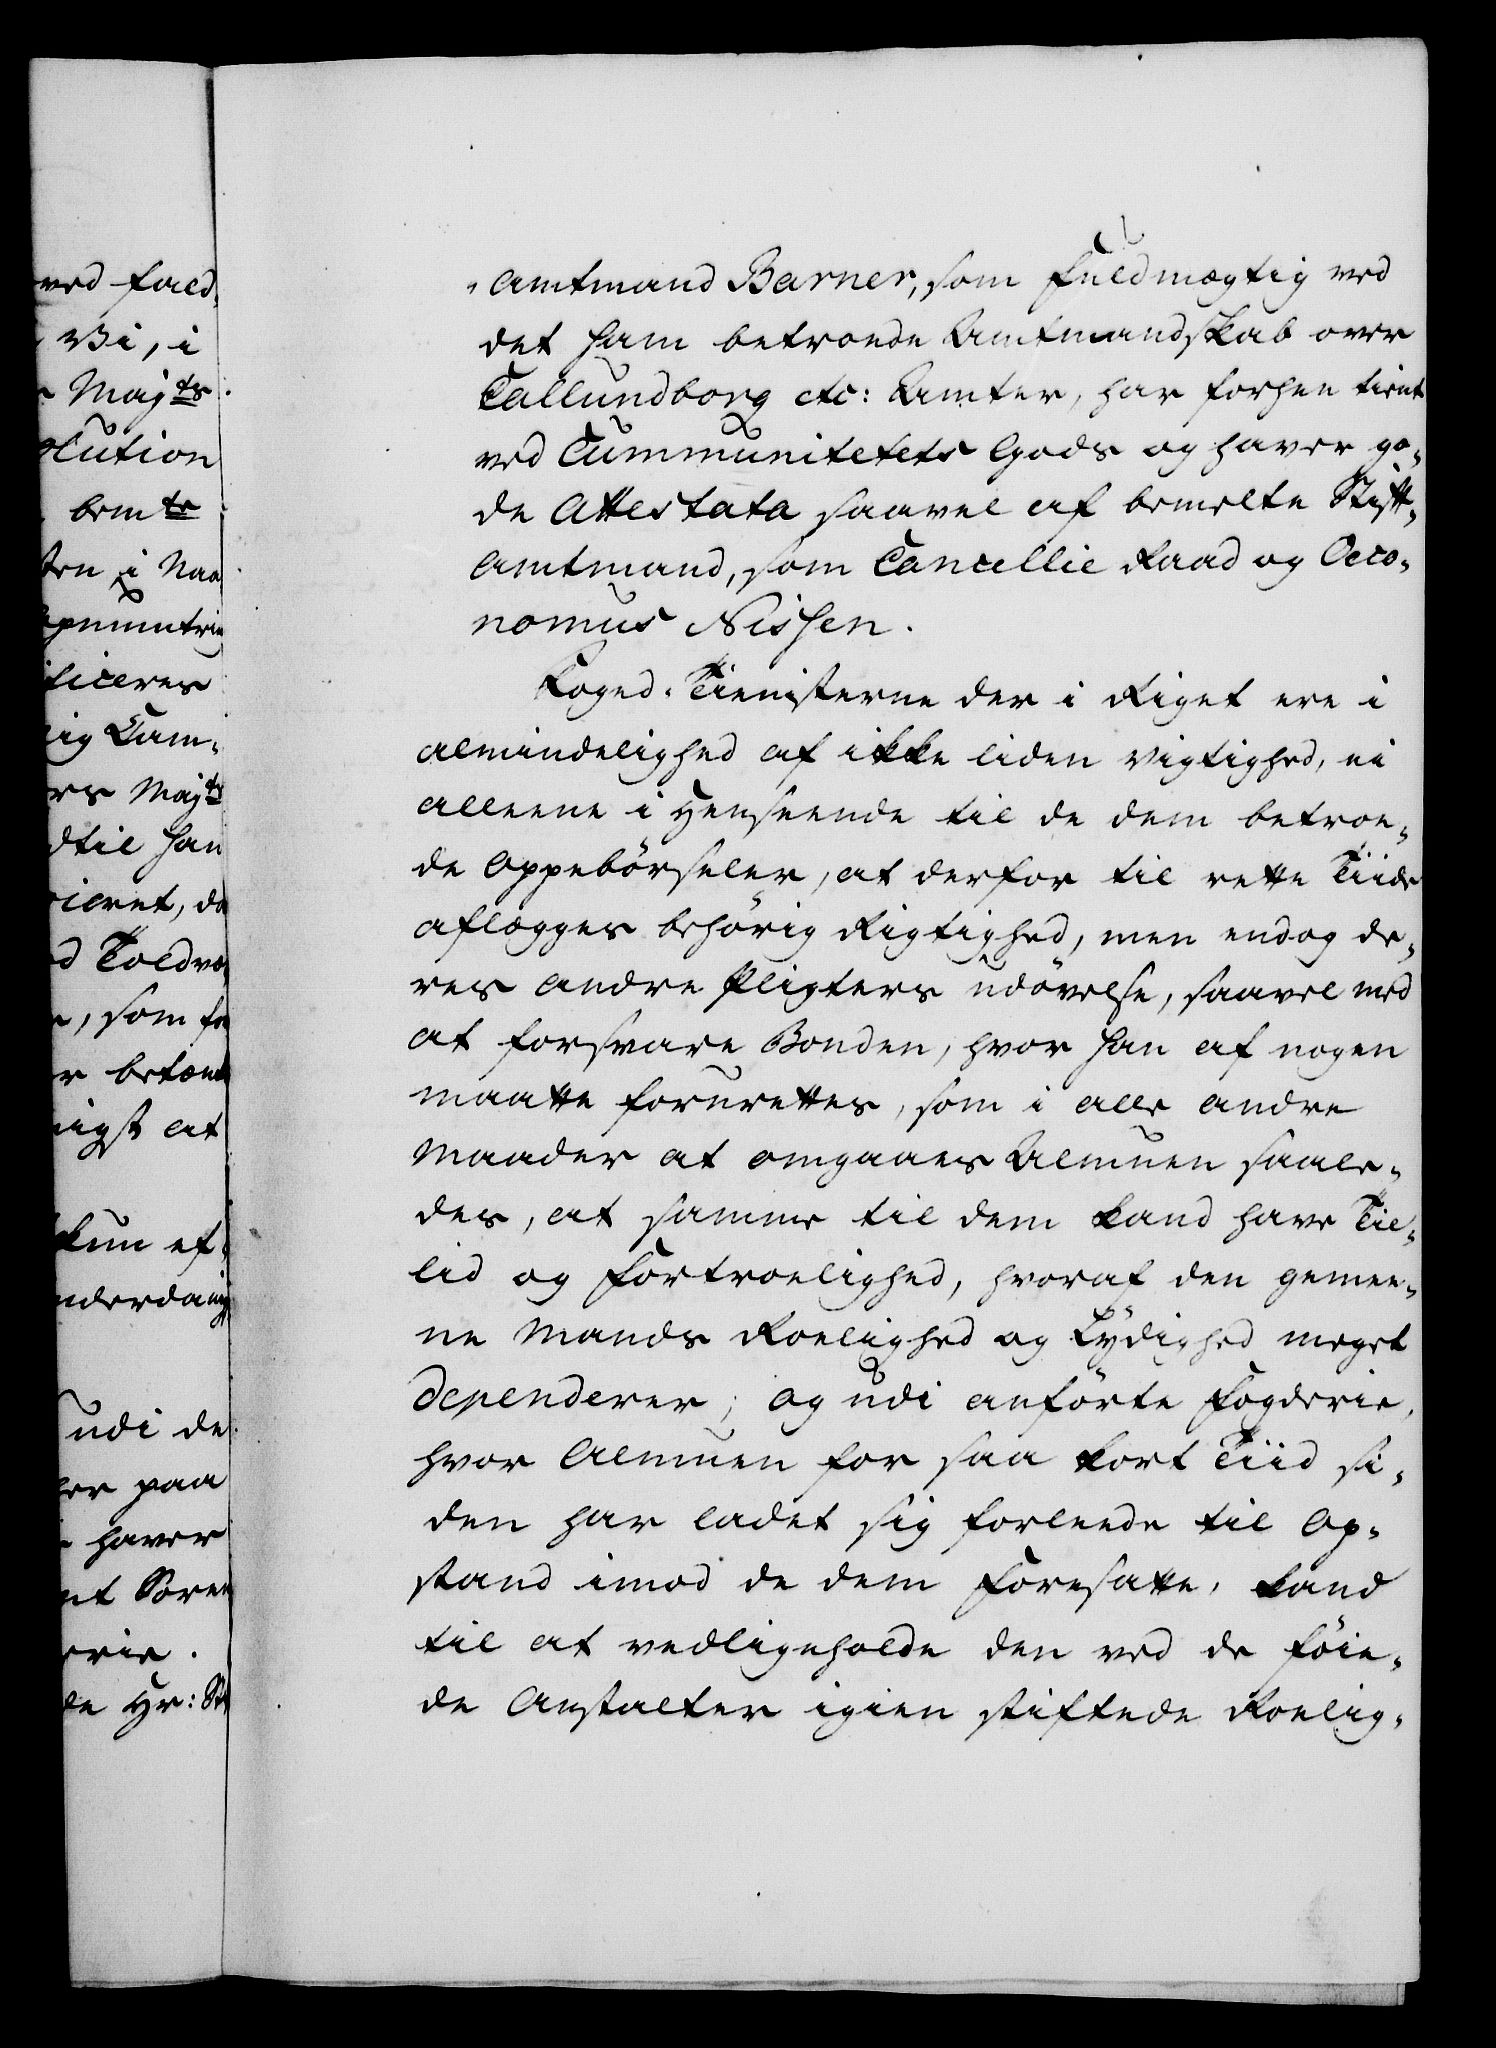 ved fald,
Vi, i
Majts
olution
bemte
sten i Naa
ficeres
ig Cam-
rs Majts
dtil han
iceret, da
d Toldvæ,
, som fo
r betænk
nigst at
kun ef-
nderdanig
udi de
ler paa
haver
nt Soren
erie.
de Hr: St
"amtmand Barner, som Fuldmægtig ved
det ham betroede Amtmandskab over
Callundborg etc: Amter, har forhen tient
ved Cummunitetets Gods og haver go-
de Attestata saavel af bemelte Stift-
amtmand, som Cancellie Raad og Oeco-
nomus Nissen.
Foged-Tienisterne der i Riget ere i
almindelighed af ikke liden vigtighed, ei
alleene i Henseende til de dem betroe-
de Oppebörseler, at derfor til rette Tiide
aflægges behörig Rigtighed, men endog de-
res andre Pligters udövelse, saavel med
at forsvare Bonden, hvor han af nogen
maatte forurettes, som i alle andre
Maader at omgaaes Almuen saale-
des, at samme til dem kand have Til-
lid og Fortroelighed, hvoraf den gemee-
ne Mands Roelighed og Lydighed meget
dependerer; og udi anförte Fogderie,
hvor Almuen for saa kort Tiid si-
den har ladet sig forleede til Op-
stand imod de dem Foresatte, kand
til at vedligeholde den ved de föie-
de Anstalter igien stiftede Roelig-